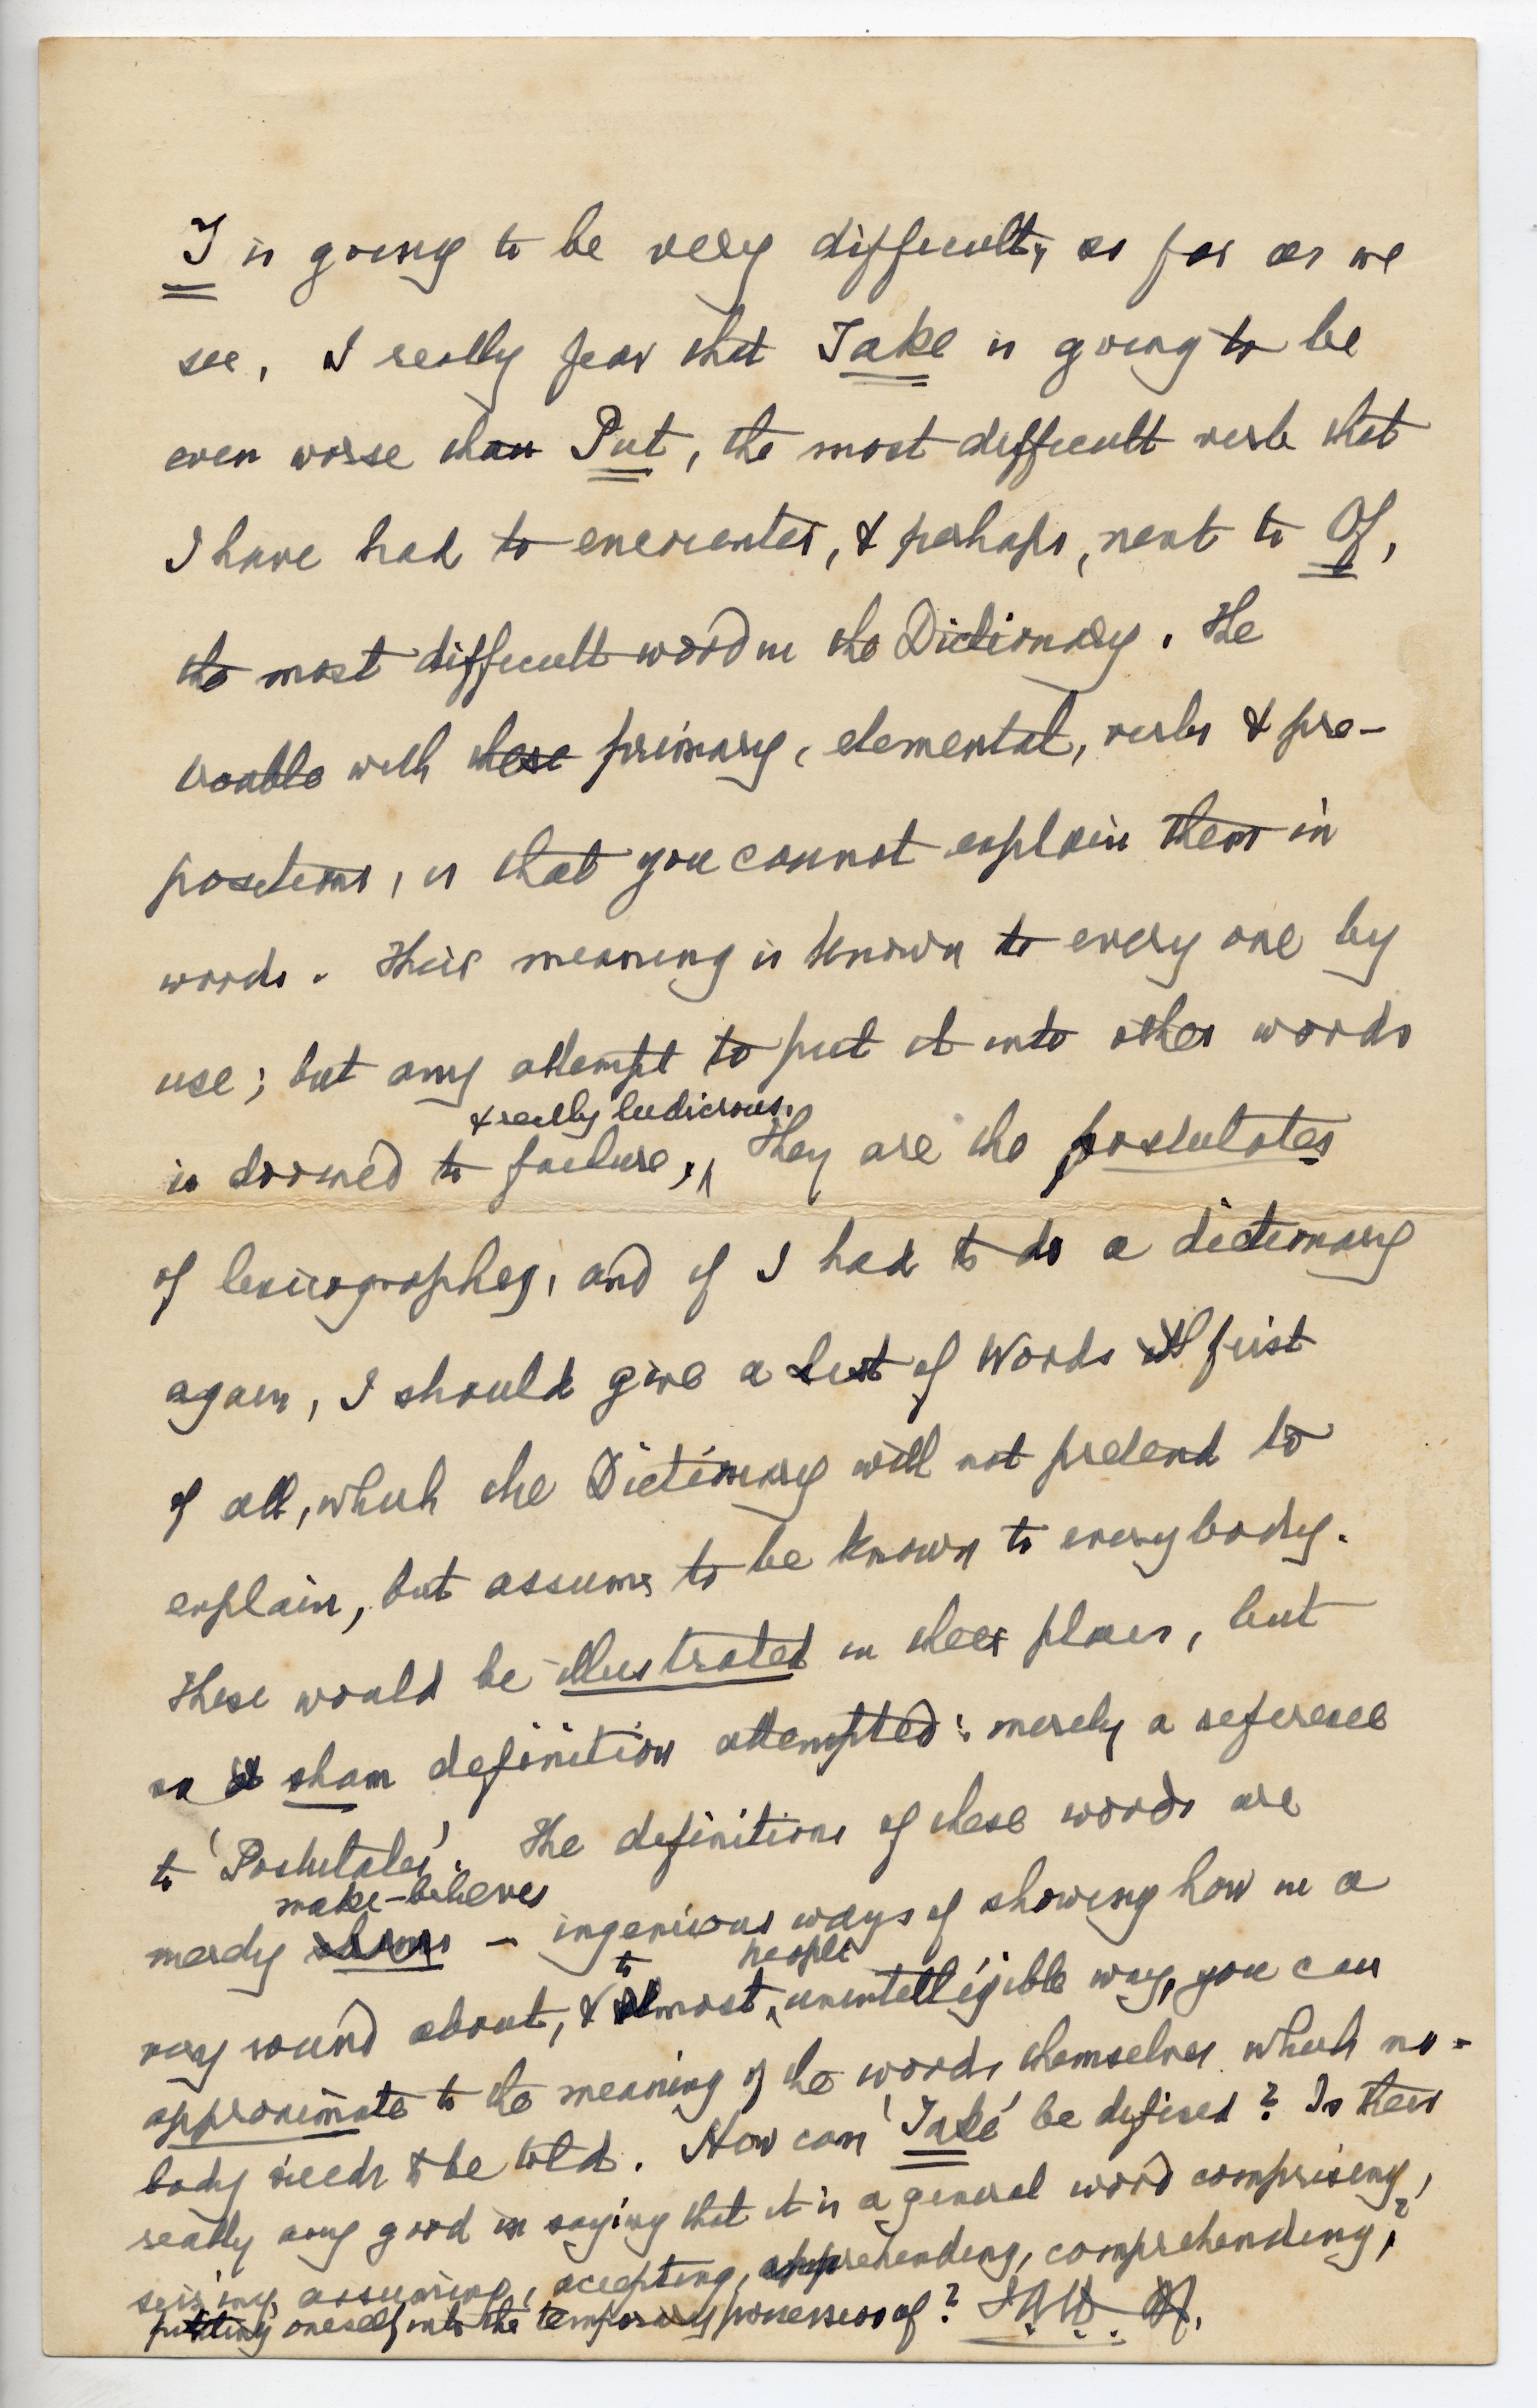 T is going to be very difficult, as far as we
see, I really fear that Take is going to be
even worse than Put, the most difficult verb that
I have had to encounter, & perhaps, next to Of,
the most difficult word in the Dictionary. The
trouble with these primary, elemental, verbs & pre-
positions, is that you cannot explain them in
words. Their meaning is known to every one by
use; but any attempt to put it into other words
& really ludicrous.
is doomed to failure, They are the postulates
of lexicography, and if I had to do a dictionary
again, I should give a List of Words first
of all, which the Dictionary will not pretend to
explain, but assumes to be known to everybody.
These would be illustrated in their places, but
no sham definition attempted: merely a reference
to 'Postulates'. The definitions of these words are
make-believes
merely shams – ingenious ways of showing how in a
to people
very round about, & most unintelligible way, you can
approximate to the meaning of the words themselves which no-
body needs to be told. How can 'Take' be defined? Is there
really any good in saying that it is a general word comprising,
seizing, assuming, accepting, apprehending, comprehending,?
putting oneself into the temporary possession of? J.A.H. M.